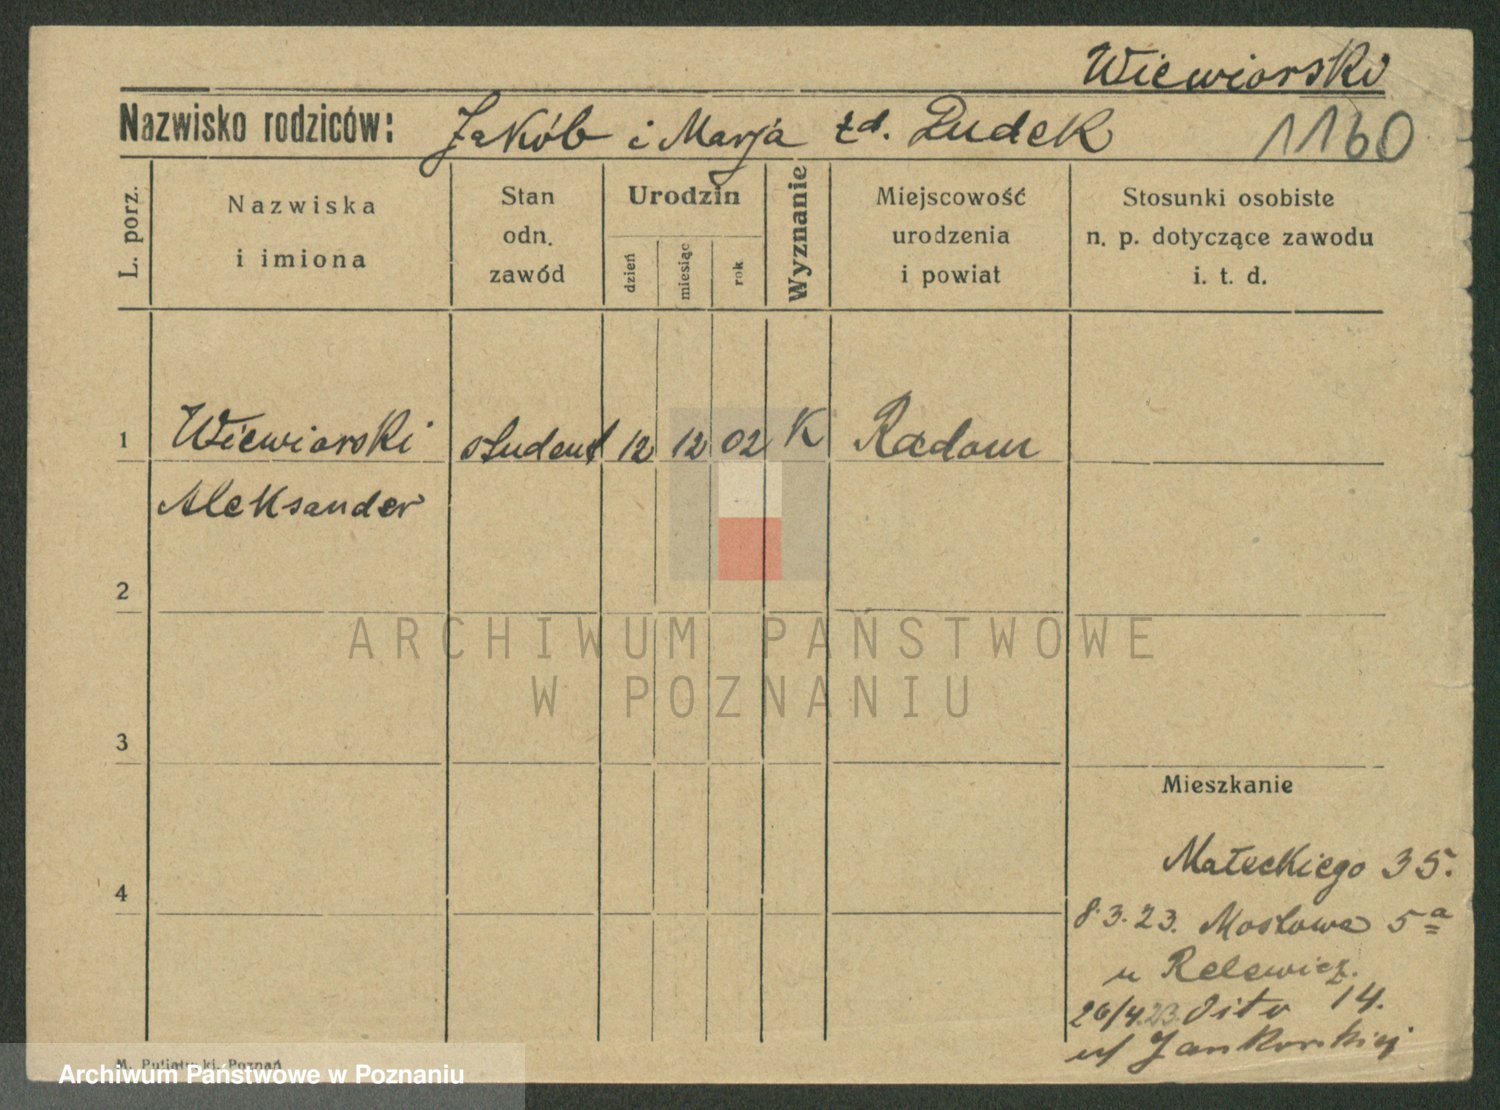 Wiewiorski
Nazwisko rodziców: Jakób i Marja zd. Dudek
1160
L. porz.
Nazwiska
i imiona
Stan
odn.
zawód
Urodzin
dzień
miesiąc
rok
Wyznanie
Miejscowość
urodzenia
i powiat
Stosunki osobiste
n. p. dotyczące zawodu
i. t. d.
1 Wiewiorski student 12 12 02 K Radom
Aleksander
2
ARCHIWUM PAŃSTWOWE
W POZNANIU
3
Mieszkanie
Małeckiego 35.
4
8.3.23. Mostowa 5a
u Relewicz.
26/4.23. 14.
M. Putiatycki, Poznań
Archiwum Państwowe w Poznaniu